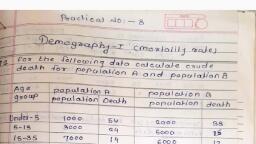 Practical No: - 8
Demography-I (mortality rates)
For the following data calculate crude
death for population A and population B
Age group population A population B
population Death population death
Under-5 1000 54 2000
5-15 3000 5000
15-35 7000 14 6000